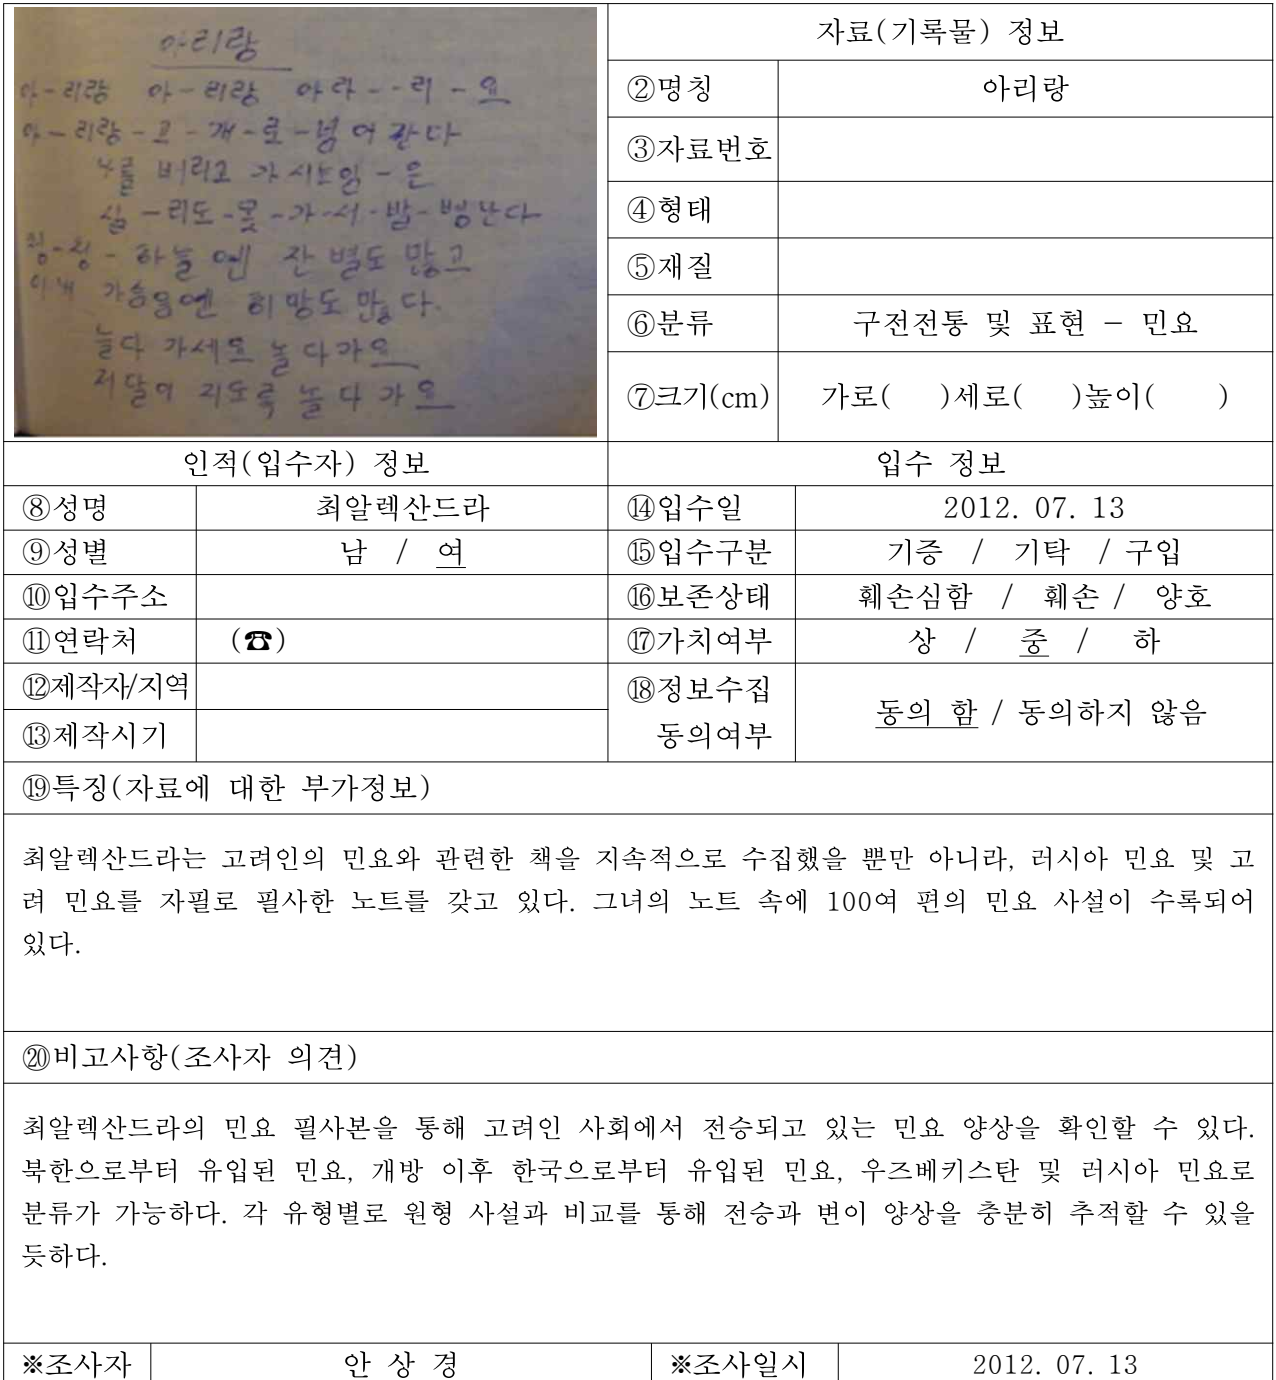 아리랑
아-리랑 아-리랑 아라--리-요
아-리랑-고-개-로-넘어간다
나를 버리고 가시는임-은
십-리도-못-가-서-발-병난다
청-청-하늘엔 잔별도 많고
이내 가슴엔 히망도 많다.
놀다 가세요 놀다가요
저달이 지도록 놀다 가요
자료(기록물) 정보
②명칭 아리랑
③자료번호
④형태
⑤재질
⑥분류 구전전통 및 표현 - 민요
⑦크기(cm) 가로( )세로( )높이( )
인적(입수자) 정보
⑧성명 최알렉산드라
⑨성별 남 / 여
⑩입수주소
⑪연락처 (☎)
⑫제작자/지역
⑬제작시기
입수 정보
⑭입수일 2012. 07. 13
⑮입수구분 기증 / 기탁 / 구입
⑯보존상태 훼손심함 / 훼손 / 양호
⑰가치여부 상 / 중 / 하
⑱정보수집
동의여부
동의 함 / 동의하지 않음
⑲특징(자료에 대한 부가정보)
최알렉산드라는 고려인의 민요와 관련한 책을 지속적으로 수집했을 뿐만 아니라, 러시아 민요 및 고
려 민요를 자필로 필사한 노트를 갖고 있다. 그녀의 노트 속에 100여 편의 민요 사설이 수록되어
있다.
⑳비고사항(조사자 의견)
최알렉산드라의 민요 필사본을 통해 고려인 사회에서 전승되고 있는 민요 양상을 확인할 수 있다.
북한으로부터 유입된 민요, 개방 이후 한국으로부터 유입된 민요, 우즈베키스탄 및 러시아 민요로
분류가 가능하다. 각 유형별로 원형 사설과 비교를 통해 전승과 변이 양상을 충분히 추적할 수 있을
듯하다.
※조사자 안 상 경 ※조사일시 2012. 07. 13